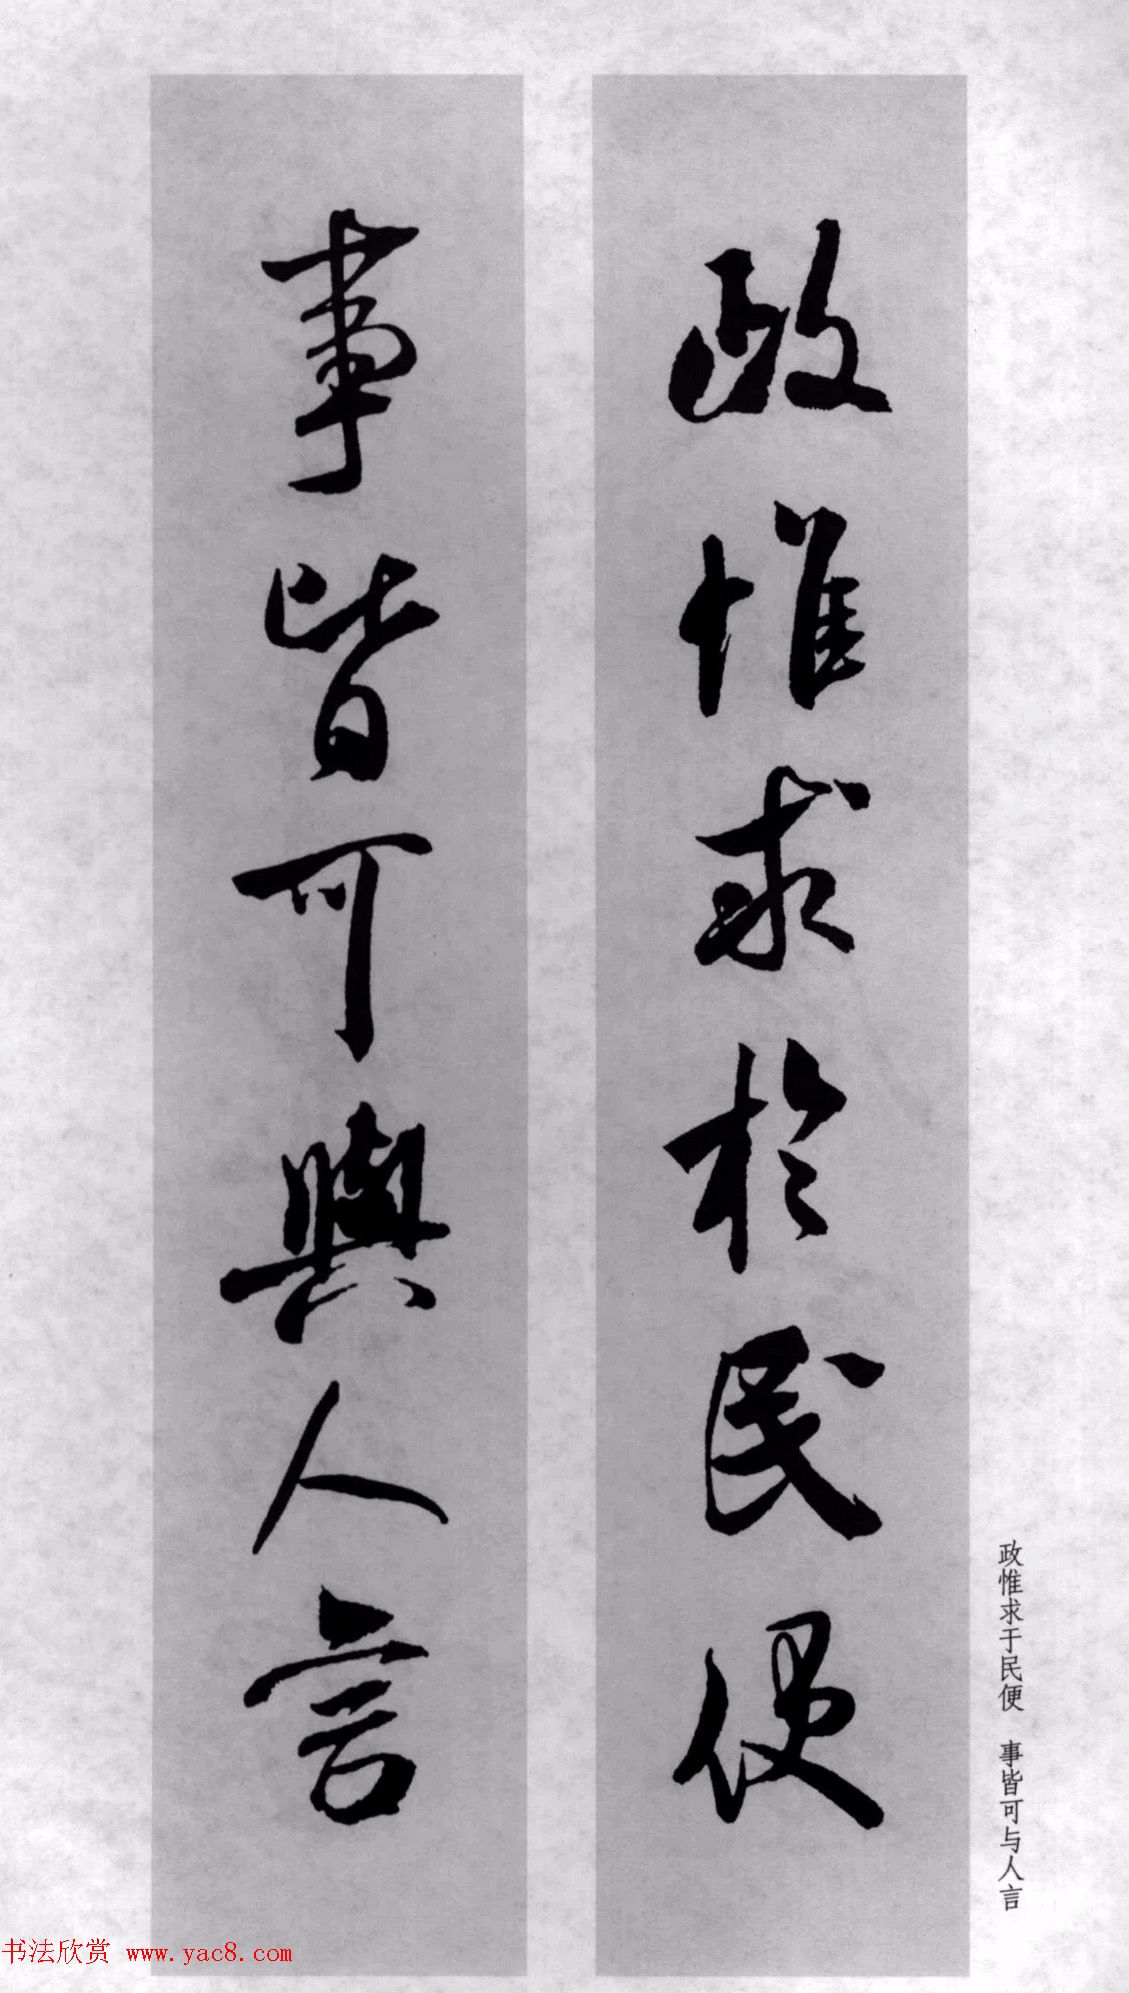 政惟求於民便
事皆可與人言
政惟求于民便 事皆可与人言
书法欣赏 www.yac8.com